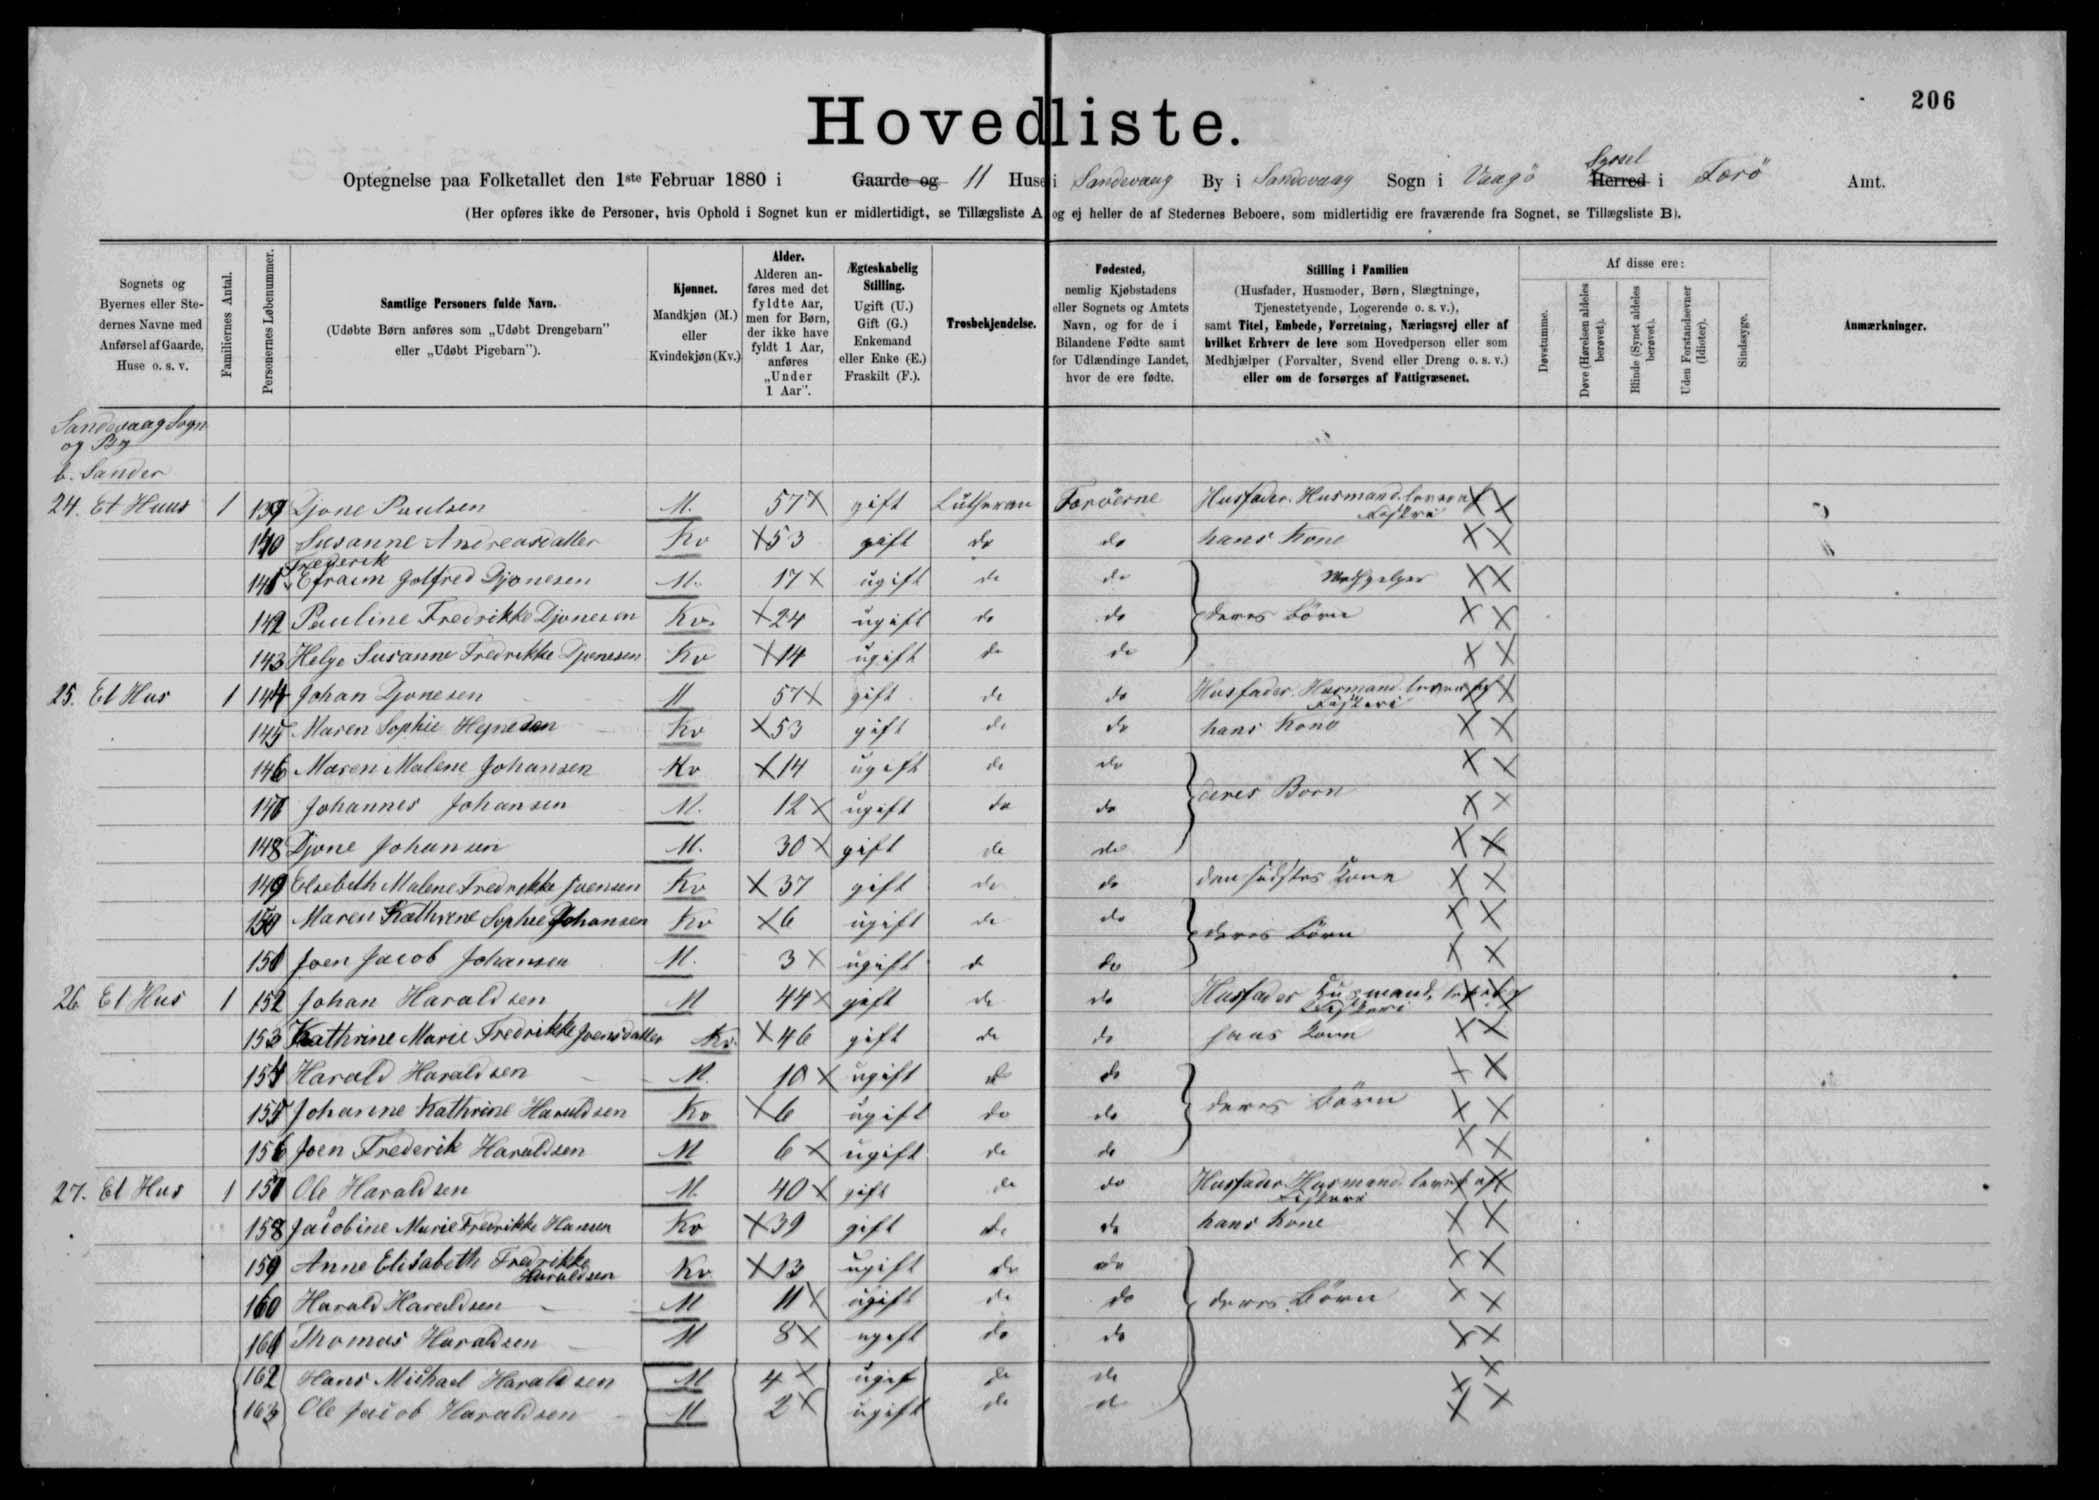 206
Hovedliste.
Optegnelse paa Folketallet den 1ste Februar 1880 i Gaarde og 11 Huse i Sandevaag By i Sandevaag Sogn i Vaagö Syssel Herred i Færö Amt.
(Her opføres ikke de Personer, hvis Ophold i Sognet kun er midlertidigt, se Tillægsliste A og ej heller de af Stedernes Beboere, som midlertidig ere fraværende fra Sognet, se Tillægsliste B).
Sognets og Byernes eller Stedernes Navne med Anførsel af Gaarde, Huse o. s. v.
Familiernes Antal.
Personernes Løbenummer.
Samtlige Personers fulde Navn.
(Udøbte Børn anføres som „Udøbt Drengebarn" eller „Udøbt Pigebarn").
Kjønnet.
Mandkjøn (M.) eller Kvindekjøn (Kv.)
Alder.
Alderen anføres med det fyldte Aar, men for Børn, der ikke have fyldt 1 Aar, anføres „Under 1 Aar".
Ægteskabelig Stilling.
Ugift (U.) Gift (G.) Enkemand eller Enke (E.) Fraskilt (F.).
Trosbekjendelse.
Fødested,
nemlig Kjøbstadens eller Sognets og Amtets Navn, og for de i Bilandene Fødte samt for Udlændinge Landet, hvor de ere fødte.
Stilling i Familien
(Husfader, Husmoder, Børn, Slægtninge, Tjenestetyende, Logerende o. s. v.),
samt Titel, Embede, Forretning, Næringsvej eller af hvilket Erhverv de leve som Hovedperson eller som Medhjælper (Forvalter, Svend eller Dreng o. s. v.) eller om de forsørges af Fattigvæsenet.
Af disse ere:
Døvstumme.
Døve (Hørelsen aldeles berøvet).
Blinde (Synet aldeles berøvet).
Uden Forstandsevner (Idioter).
Sindssyge.
Anmærkninger.
Sandevaag Sogn
og By
b. Sander
24. Et Huus 1 139 Djone Poulsen M. 57 X gift Lutheran Færöerne Husfader. Husmand. lever af Fiskeri X X
140 Susanne Andreasdatter Kv X 53 gift do do hans Kone X X
141 Frederik Efraim Gotfred Djonesen M. 17 X ugift do do Medhjelper X X
142 Pauline Fredrikke Djonesen Kv. X 24 ugift do do deres Börn X X
143 Helge Susanne Fredrikke Djonesen Kv X 14 ugift do do X X
25. Et Hus 1 144 Johan Djonesen M 57 X gift do do Husfader. Husmand. lever af Fiskeri X X
145 Maren Sophie Hejnesen Kv X 53 gift do do hans Kone X X
146 Maren Malene Johansen Kv X 14 ugift do do X X
147 Johannes Johansen M. 12 X ugift do do deres Børn X X
148 Djone Johansen M. 30 X gift do do X X
149 Elsebeth Malene Fredrikke Joensen Kv X 37 gift do do den sidstes Kone X X
150 Maren Kathrine Sophie Johansen Kv X 6 ugift do do deres Börn X X
151 Joen Jacob Johansen M. 3 X ugift d do X X
26 Et Hus 1 152 Johan Haraldsen M 44 X gift do do Husfader Husmand, lever af Fiskeri X X
153 Kathrine Marie Fredrikke Joensdatter Kv. X 46 gift do do hans Kone X X
154 Harald Haraldsen M. 10 X ugift do do X X
155 Johanne Kathrine Haraldsen Kv X 6 ugift do do deres Börn X X
156 Joen Frederik Haraldsen M 6 X ugift do do X X
27. Et Hus 1 157 Ole Haraldsen M. 40 X gift do do Husfader. Husmand. lever af Fiskeri X X
158 Jacobine Marie Fredrikke Hansen Kv X 39 gift do do hans Kone X X
159 Anne Elisabeth Fredrikke Haraldsen Kv X 13 ugift do do X X
160 Harald Haraldsen M 11 X ugift do do deres Börn X X
161 Thomas Haraldsen M 8 X ugift do do X X
162 Hans Michael Haraldsen M 4 X ugift do do X X
163 Ole Jacob Haraldsen M 2 X ugift do do X X